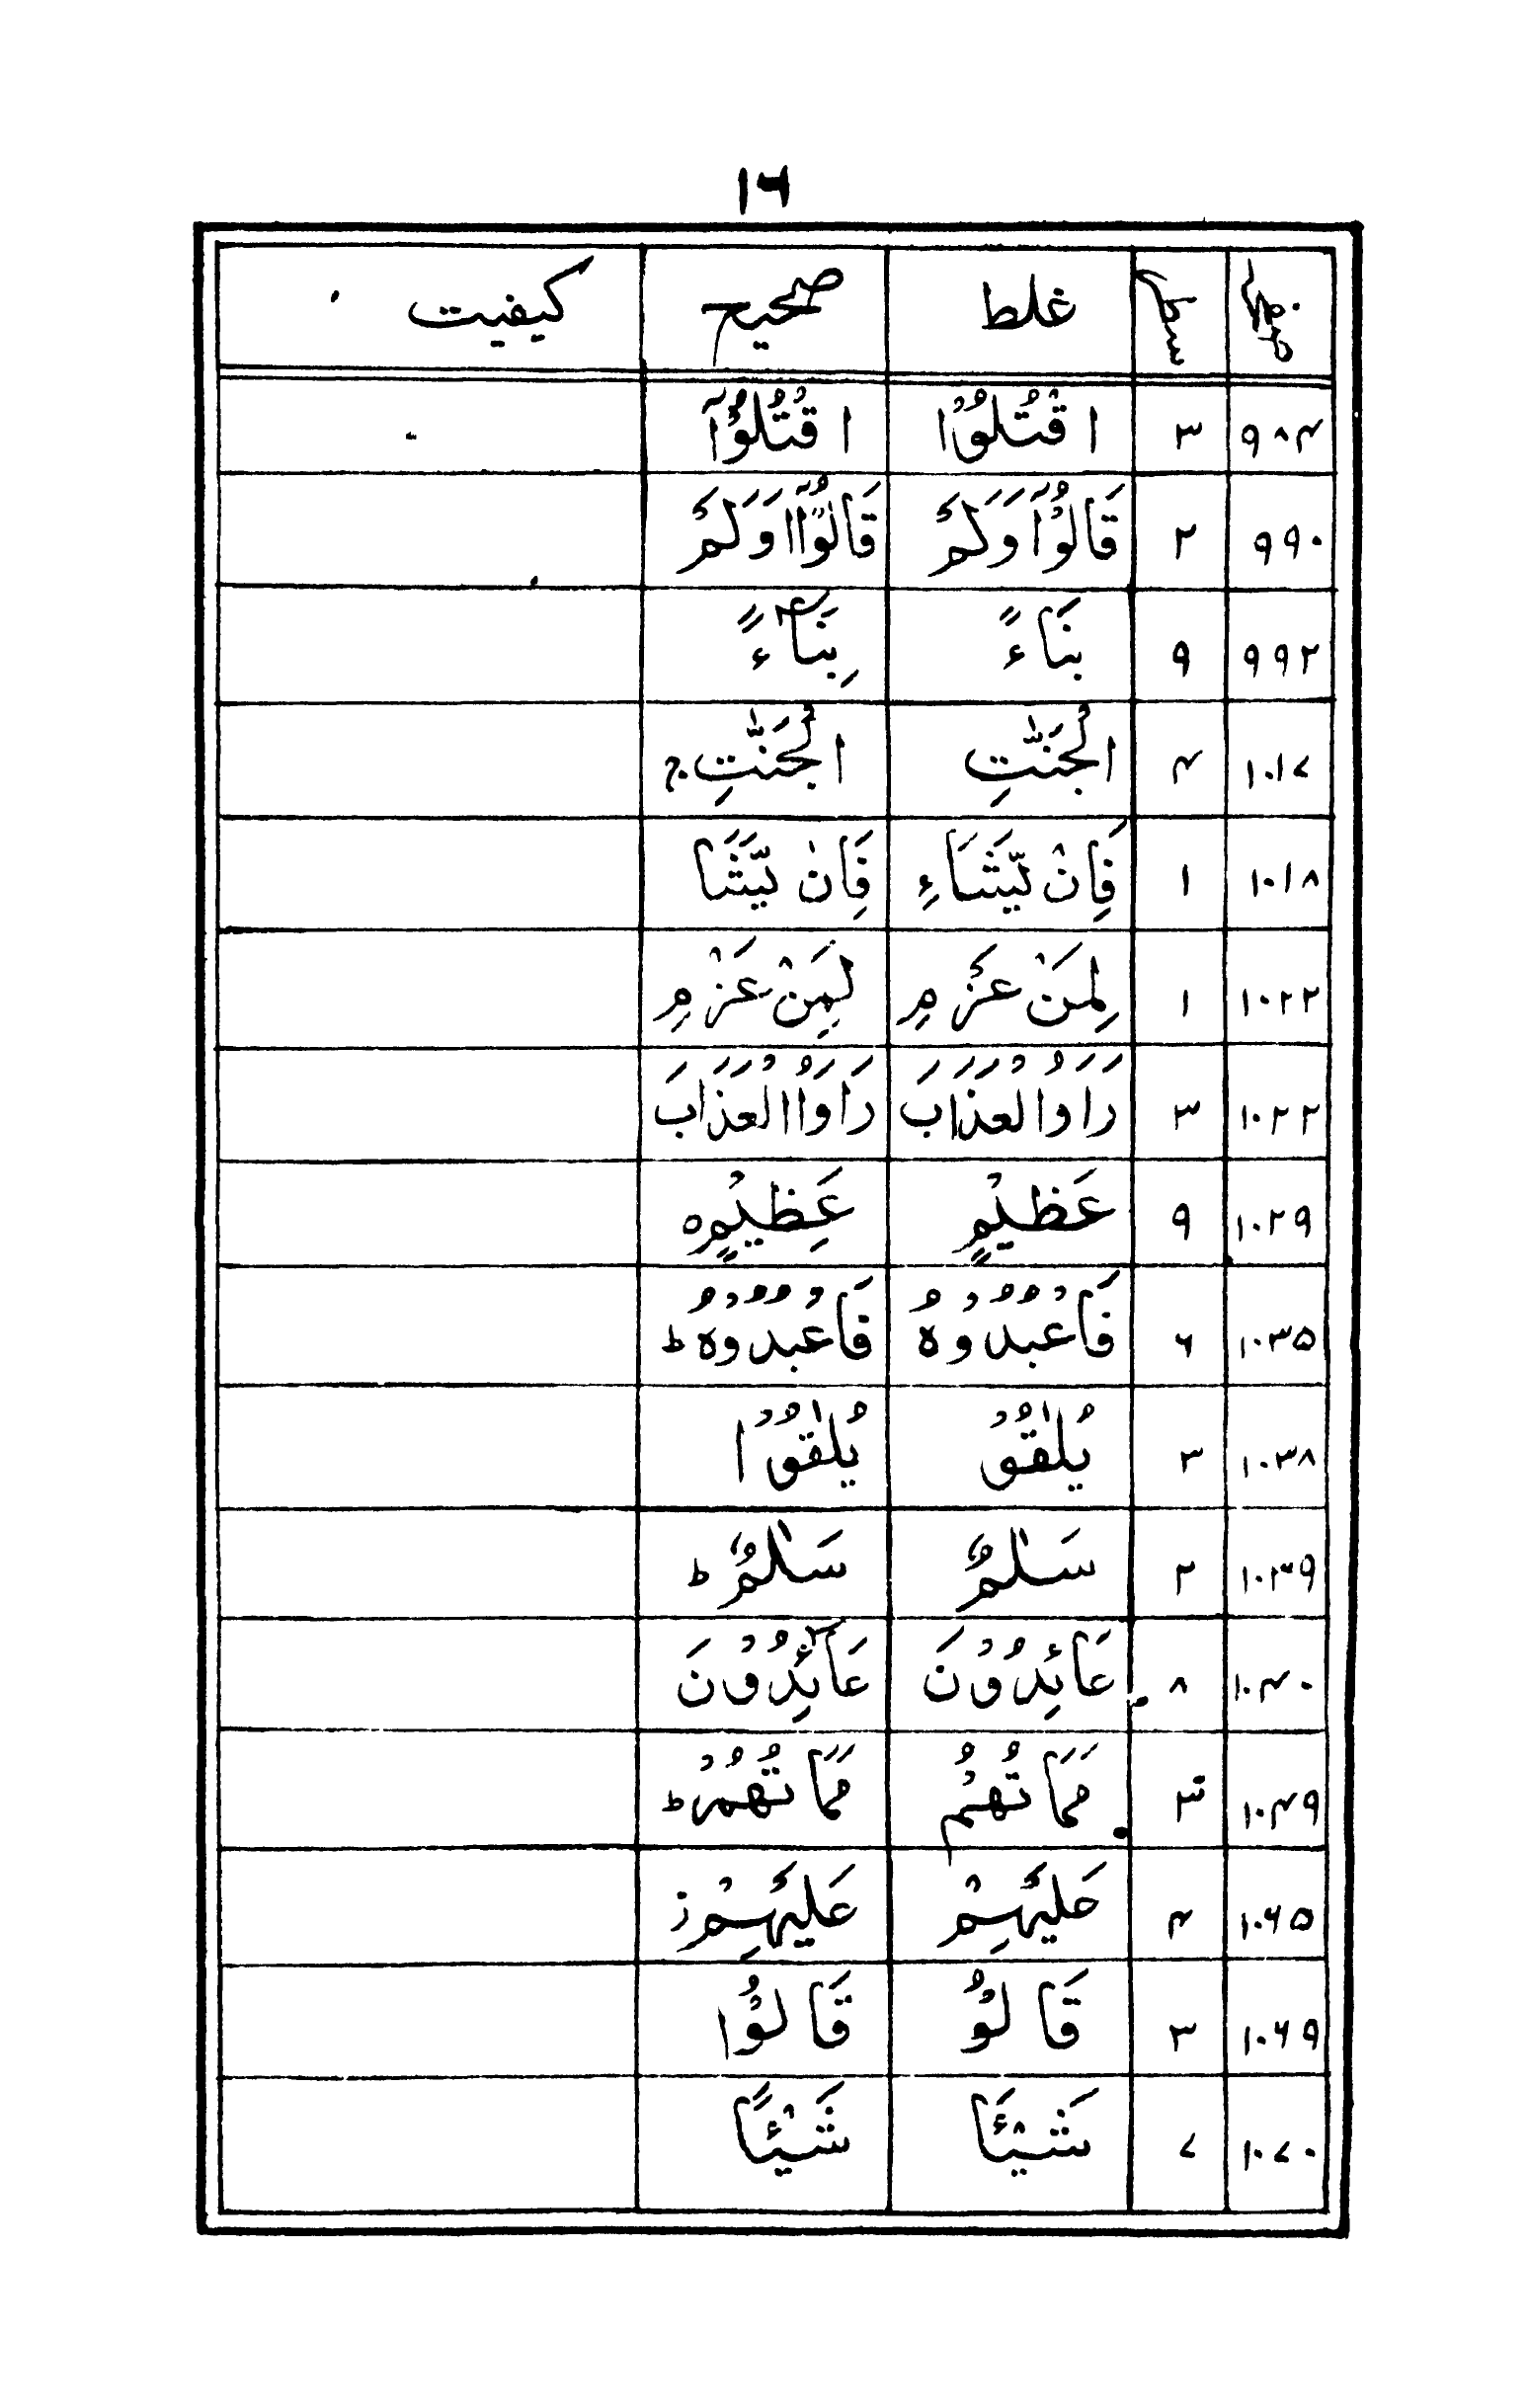 ۱۶
صفحہ سطر غلط صحیح کیفیت
۹۸۴ ۳ اقْتُلُوْا اقْتُلُوْۤا
۹۹۰ ۲ قَالُوْۤا وَلَمْ قَالُوْۤا اَوَلَمْ
۹۹۲ ۹ بِنَاءً بِنَآءً
۱۰۱۷ ۴ الْجَنّٰتِ الْجَنّٰتِ ج
۱۰۱۸ ۱ فَاِنْ يَّشَاءِ فَاِنْ يَّشَا
۱۰۲۲ ۱ لِمَنْ عَزْمِ لَمِنْ عَزْمِ
۱۰۲۲ ۳ رَاَوُا لْعَذَابَ رَاَوُا الْعَذَابَ
۱۰۲۹ ۹ عَظِيْمٍ عَظِيْمٍ ہ
۱۰۳۵ ۶ فَاعْبُدُوْهُ فَاعْبُدُوْهُ ط
۱۰۳۸ ۳ يُلٰقُوْ يُلٰقُوْا
۱۰۳۹ ۲ سَلٰمٌ سَلٰمٌ ط
۱۰۴۰ ۸ عَائِدُوْنَ عَآئِدُوْنَ
۱۰۴۹ ۳ مَمَاتُهُمْ مَمَاتُهُمْ ط
۱۰۶۵ ۴ حَلَيْهِمْ عَلَيْهِمْ ز
۱۰۶۹ ۳ قَالُوْ قَالُوْا
۱۰۷۰ ۷ شَيْئَا شَيْئًا